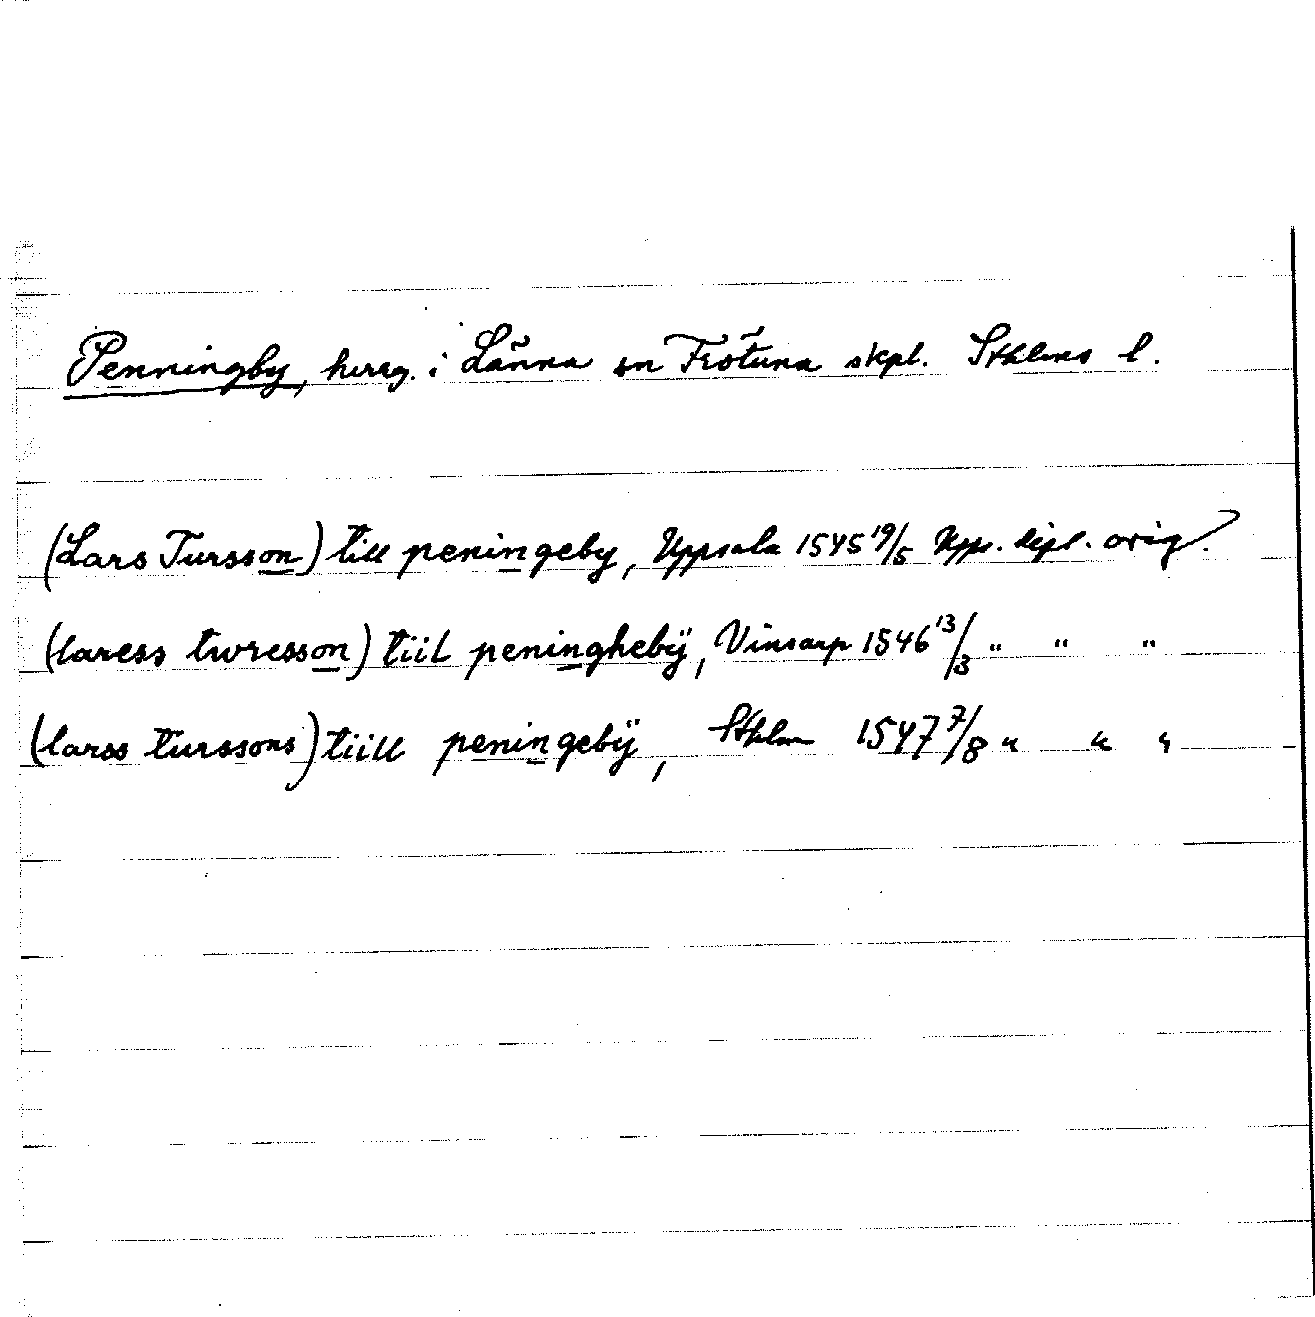 Penningby, herrg. i Länna sn Frötuna skpl. Sthlms l.
(Lars Tursson) till peningeby, Uppsala 1545 19/5 Upps. dipl. orig.
(laress twresson) tiil peninghebÿ, Vinsarp 1546 13/3 " " "
(larss turssons) tiill peningebÿ, Sthlm 1547 7/8 " " "